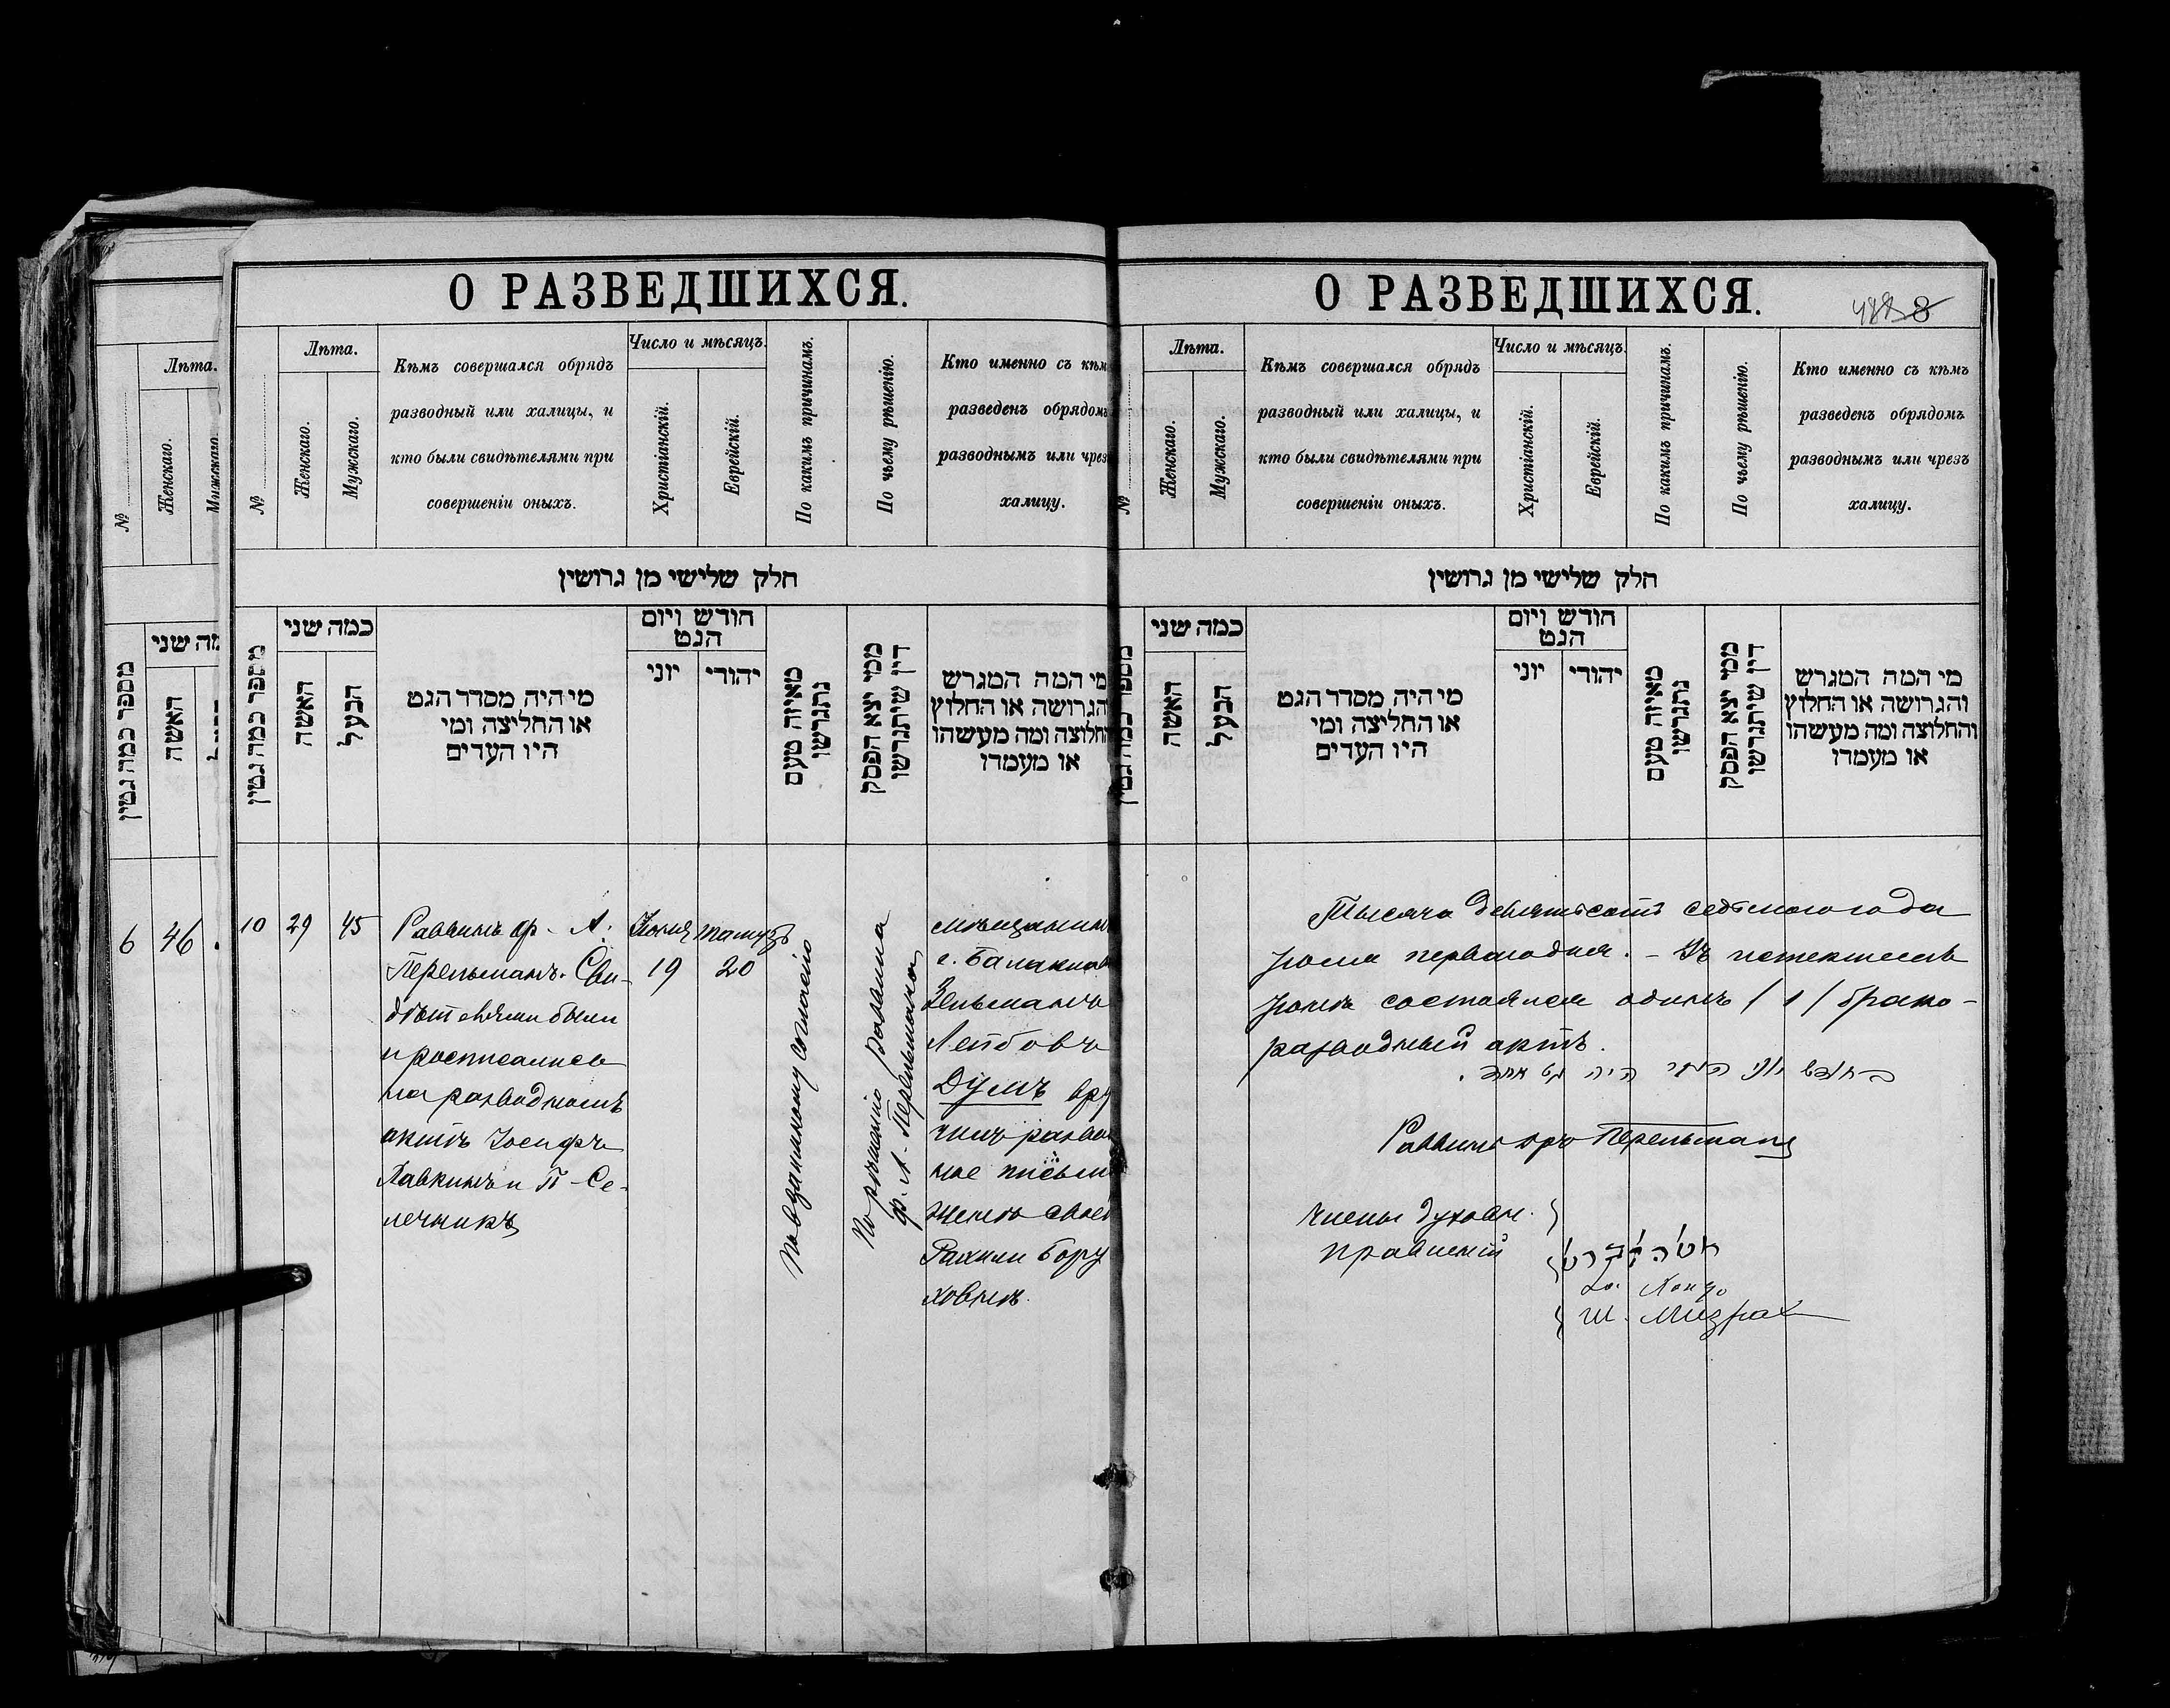 О РАЗВЕДШИХСЯ.
Лѣта.
№
Женскаго.
Мужскаго.
Кѣмъ совершался обрядъ
разводный или халицы, и
кто были свидѣтелями при
совершеніи оныхъ.
Число и мѣсяцъ.
Христіанскій.
Еврейскій.
По какимъ причинамъ.
По чьему рѣшенію.
Кто именно съ кѣм
разведенъ обрядом
разводнымъ или чрез
халицу.
חלק שלישי מן גרושין
מספר כמה גטין
כמה שני
האשה
הבעל
מי היה מסדר הגט
או החליצה ומי
היו העדים
חודש ויום
הגט
יוני
יהודי
מאיזה טעם
נתגרשו
ממי יצא הפסק
דין שיתגרשו
מי המה המגרש
והגרושה או החלוץ
והחלוצה ומה מעשהו
או מעמדו
10 29 45
Раввинъ др. А.
Перельманъ. Сви-
дѣтелями были
и росписались
на разводномъ
актѣ Іосифъ
Хавкинъ и П. Се-
лечникъ
Іюня
19
Тамузъ
20
По взаимному согласію
По рѣшенію Раввина
др. А. Перельмана
мѣщанинъ
г. Балаклав
Зельманъ
Лейбовъ
Думъ вру
чилъ развод
ное письмо
женѣ своей
Рахили Бору
ховнѣ.
Лѣта.
№
Женскаго.
מספר כמה גטין
האשה
6 46
О РАЗВЕДШИХСЯ.
8
Лѣта.
№
Женскаго.
Мужскаго.
Кѣмъ совершался обрядъ
разводный или халицы, и
кто были свидѣтелями при
совершеніи оныхъ.
Число и мѣсяцъ.
Христіанскій.
Еврейскій.
По какимъ причинамъ.
По чьему рѣшенію.
Кто именно съ кѣмъ
разведенъ обрядомъ
разводнымъ или чрезъ
халицу.
חלק שלישי מן גרושין
כמה שני
האשה
הבעל
מי היה מסדר הגט
או החליצה ומי
היו העדים
חודש ויום
הגט
יוני
יהודי
מאיזה טעם
נתגרשו
ממי יצא הפסק
דין שיתגרשו
מי המה המגרש
והגרושה או החלוץ
והחלוצה ומה מעשהו
או מעמדו
Тысяча девятьсотъ седьмого года
іюля перваго дня. – Въ истекшемъ
іюнѣ состоялся одинъ /1/ брако-
разводный актъ.
היה גט אחד.
Раввинъ дръ Перельманъ
Члены духовн.
правленій
Ш. Мизрах